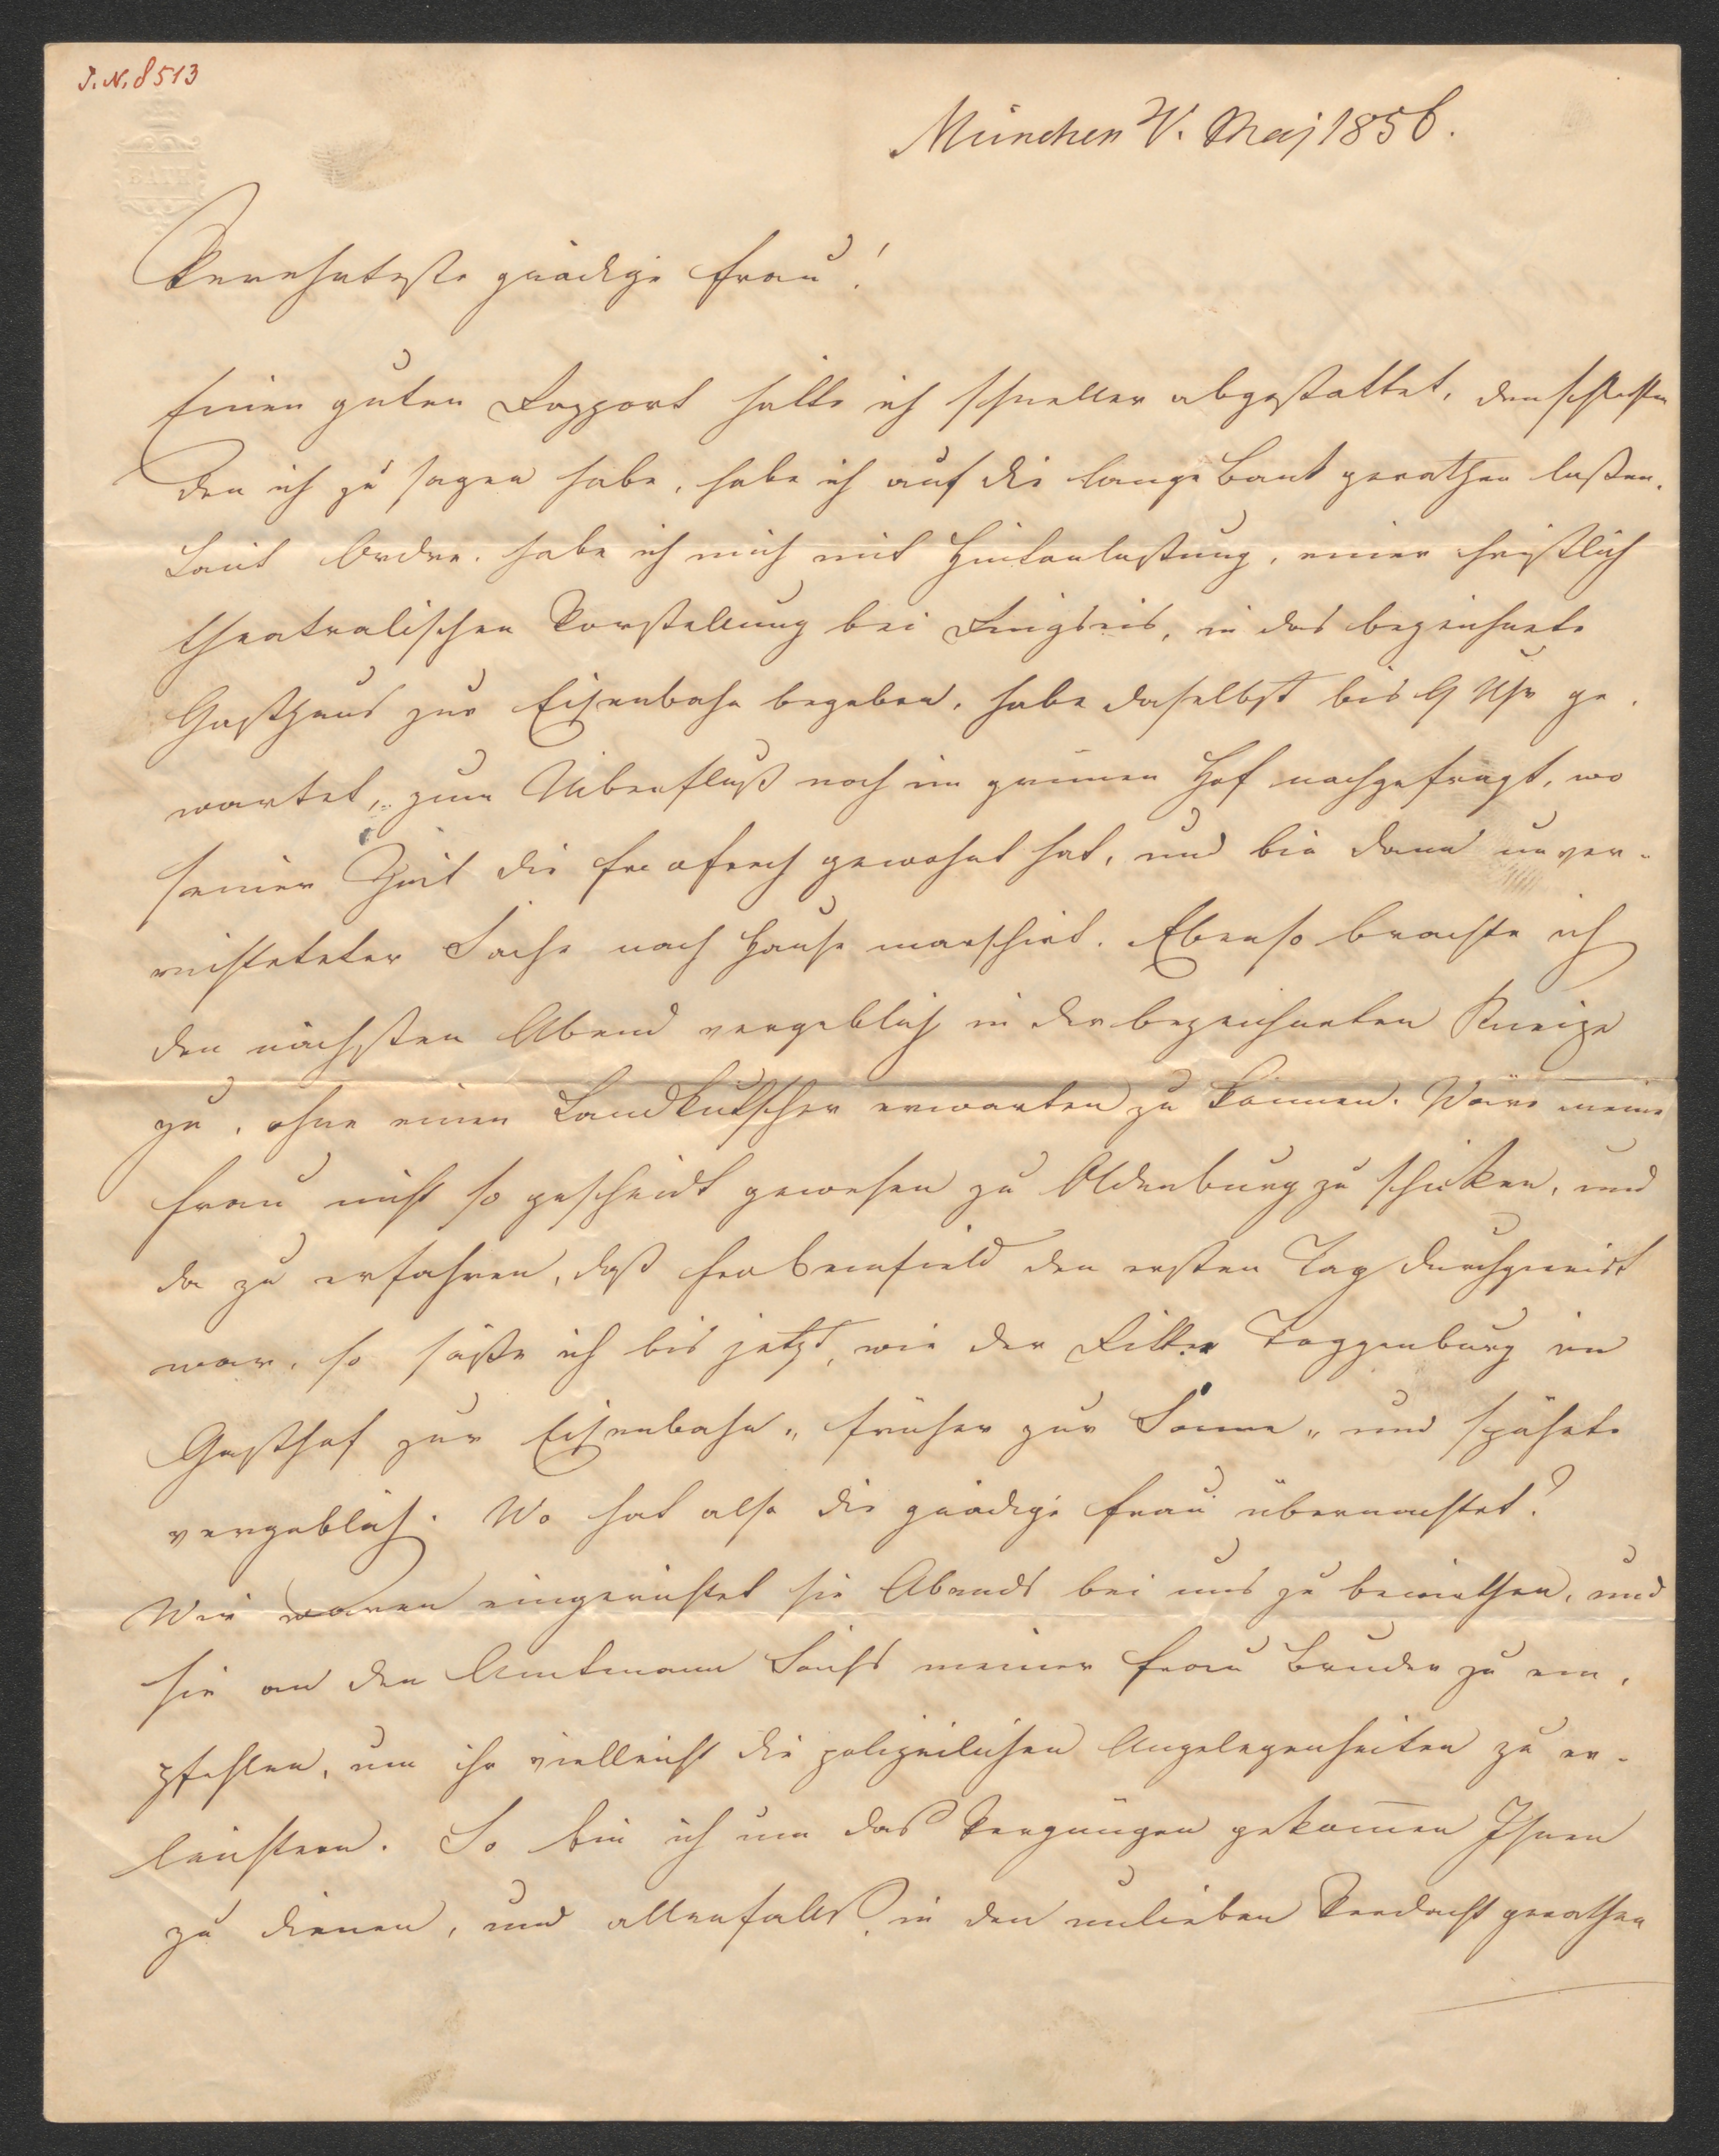 J. N. 8513
BATH
München V. Maj 1856.
Verehrteste gnädige Frau!
Einen guten Rapport hätte ich schneller abgestattet, den schlechten
den ich zu sagen habe, habe ich auf die lange Bank gerathen laßen.
Laut Ordre. habe ich mich mit Hintanlaßung, einer christlich
theatralischen Vorstellung bei Ringseis, in das bezeichnete
Gasthaus zur Eisenbahn begeben, habe daselbst bis 9 Uhr ge-
wartet, zum Uiberfluß noch im grünen Hof nachgefragt, wo
seiner Zeit die gewohnt hat, und bin dann unver-
richteter Sache nach Hause marschirt. Ebenso brachte ich
den nächsten Abend vergeblich in der bezeichneten Kneipe
zu, ohne einen Landkutscher erwarten zu können. Wäre meine
Frau nicht so gescheidt gewesen zu Oldenburg zu schicken, und
da zu erfahren, daß den ersten Tag durchgereist
war, so säße ich bis jetzt, wie der Ritter Toggenburg im
Gasthof zur Eisenbahn „früher zur Sonne„ und spähete
vergeblich. Wo hat also die gnädige Frau übernachtet?
Wir waren eingerichtet sie Abends bei uns zu bewirthen, und
sie an den Amtmann meiner Frau Bruder zu em-
pfehlen, um ihr vielleicht die polizeilichen Angelegenheiten zu er-
leichtern. So bin ich um das Vergnügen gekom̅en Ihnen
zu dienen, und allenfalls in den unlieben Verdacht gerathen